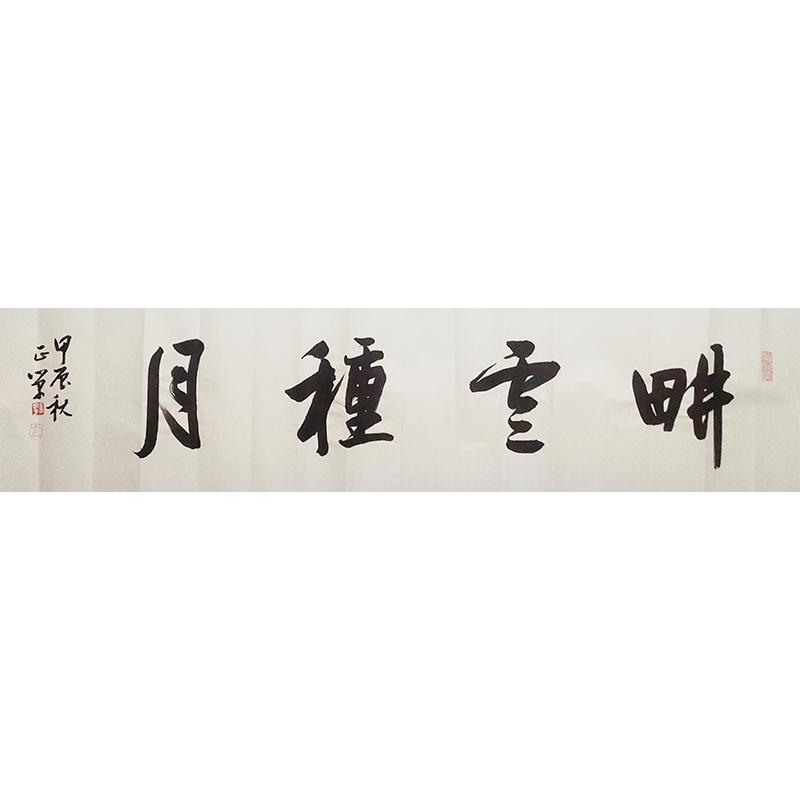 畊雲種月
甲辰秋
正